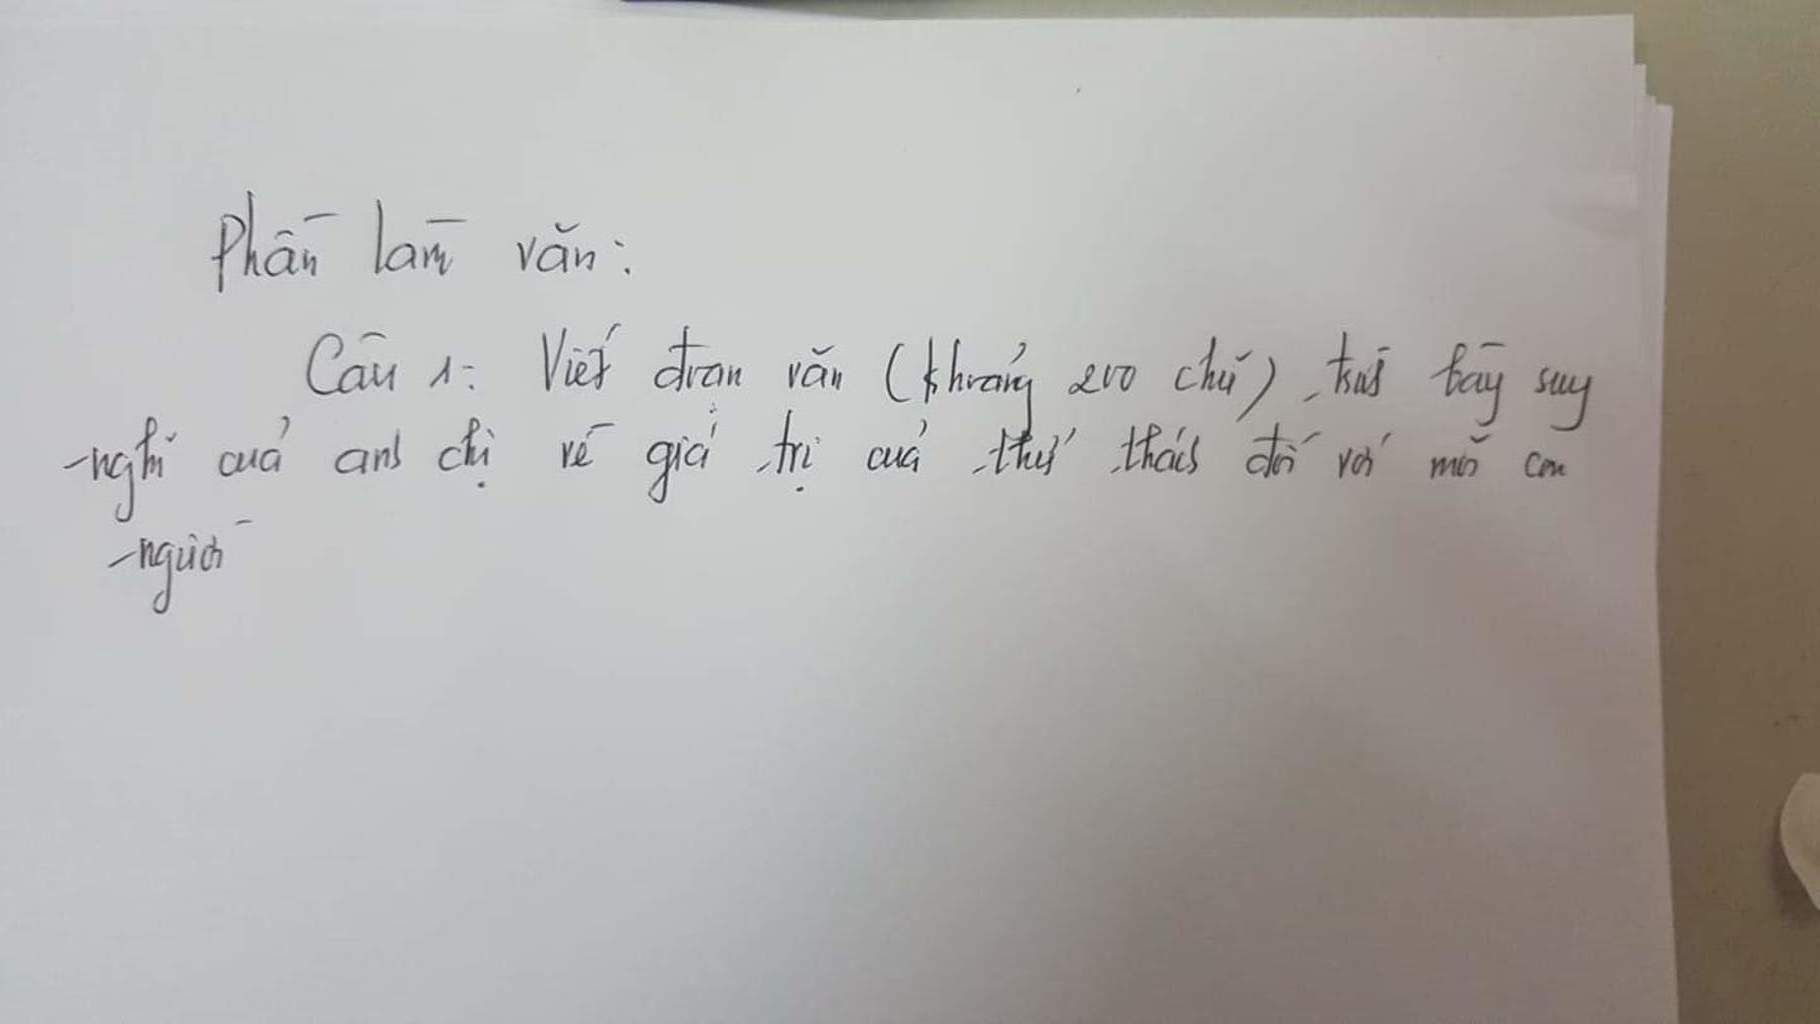 Phần làm văn:
Câu 1: Viết đoạn văn (khoảng 200 chữ), trình bày suy
nghĩ của anh chị về giá trị của thử thách đối với mỗi con
người